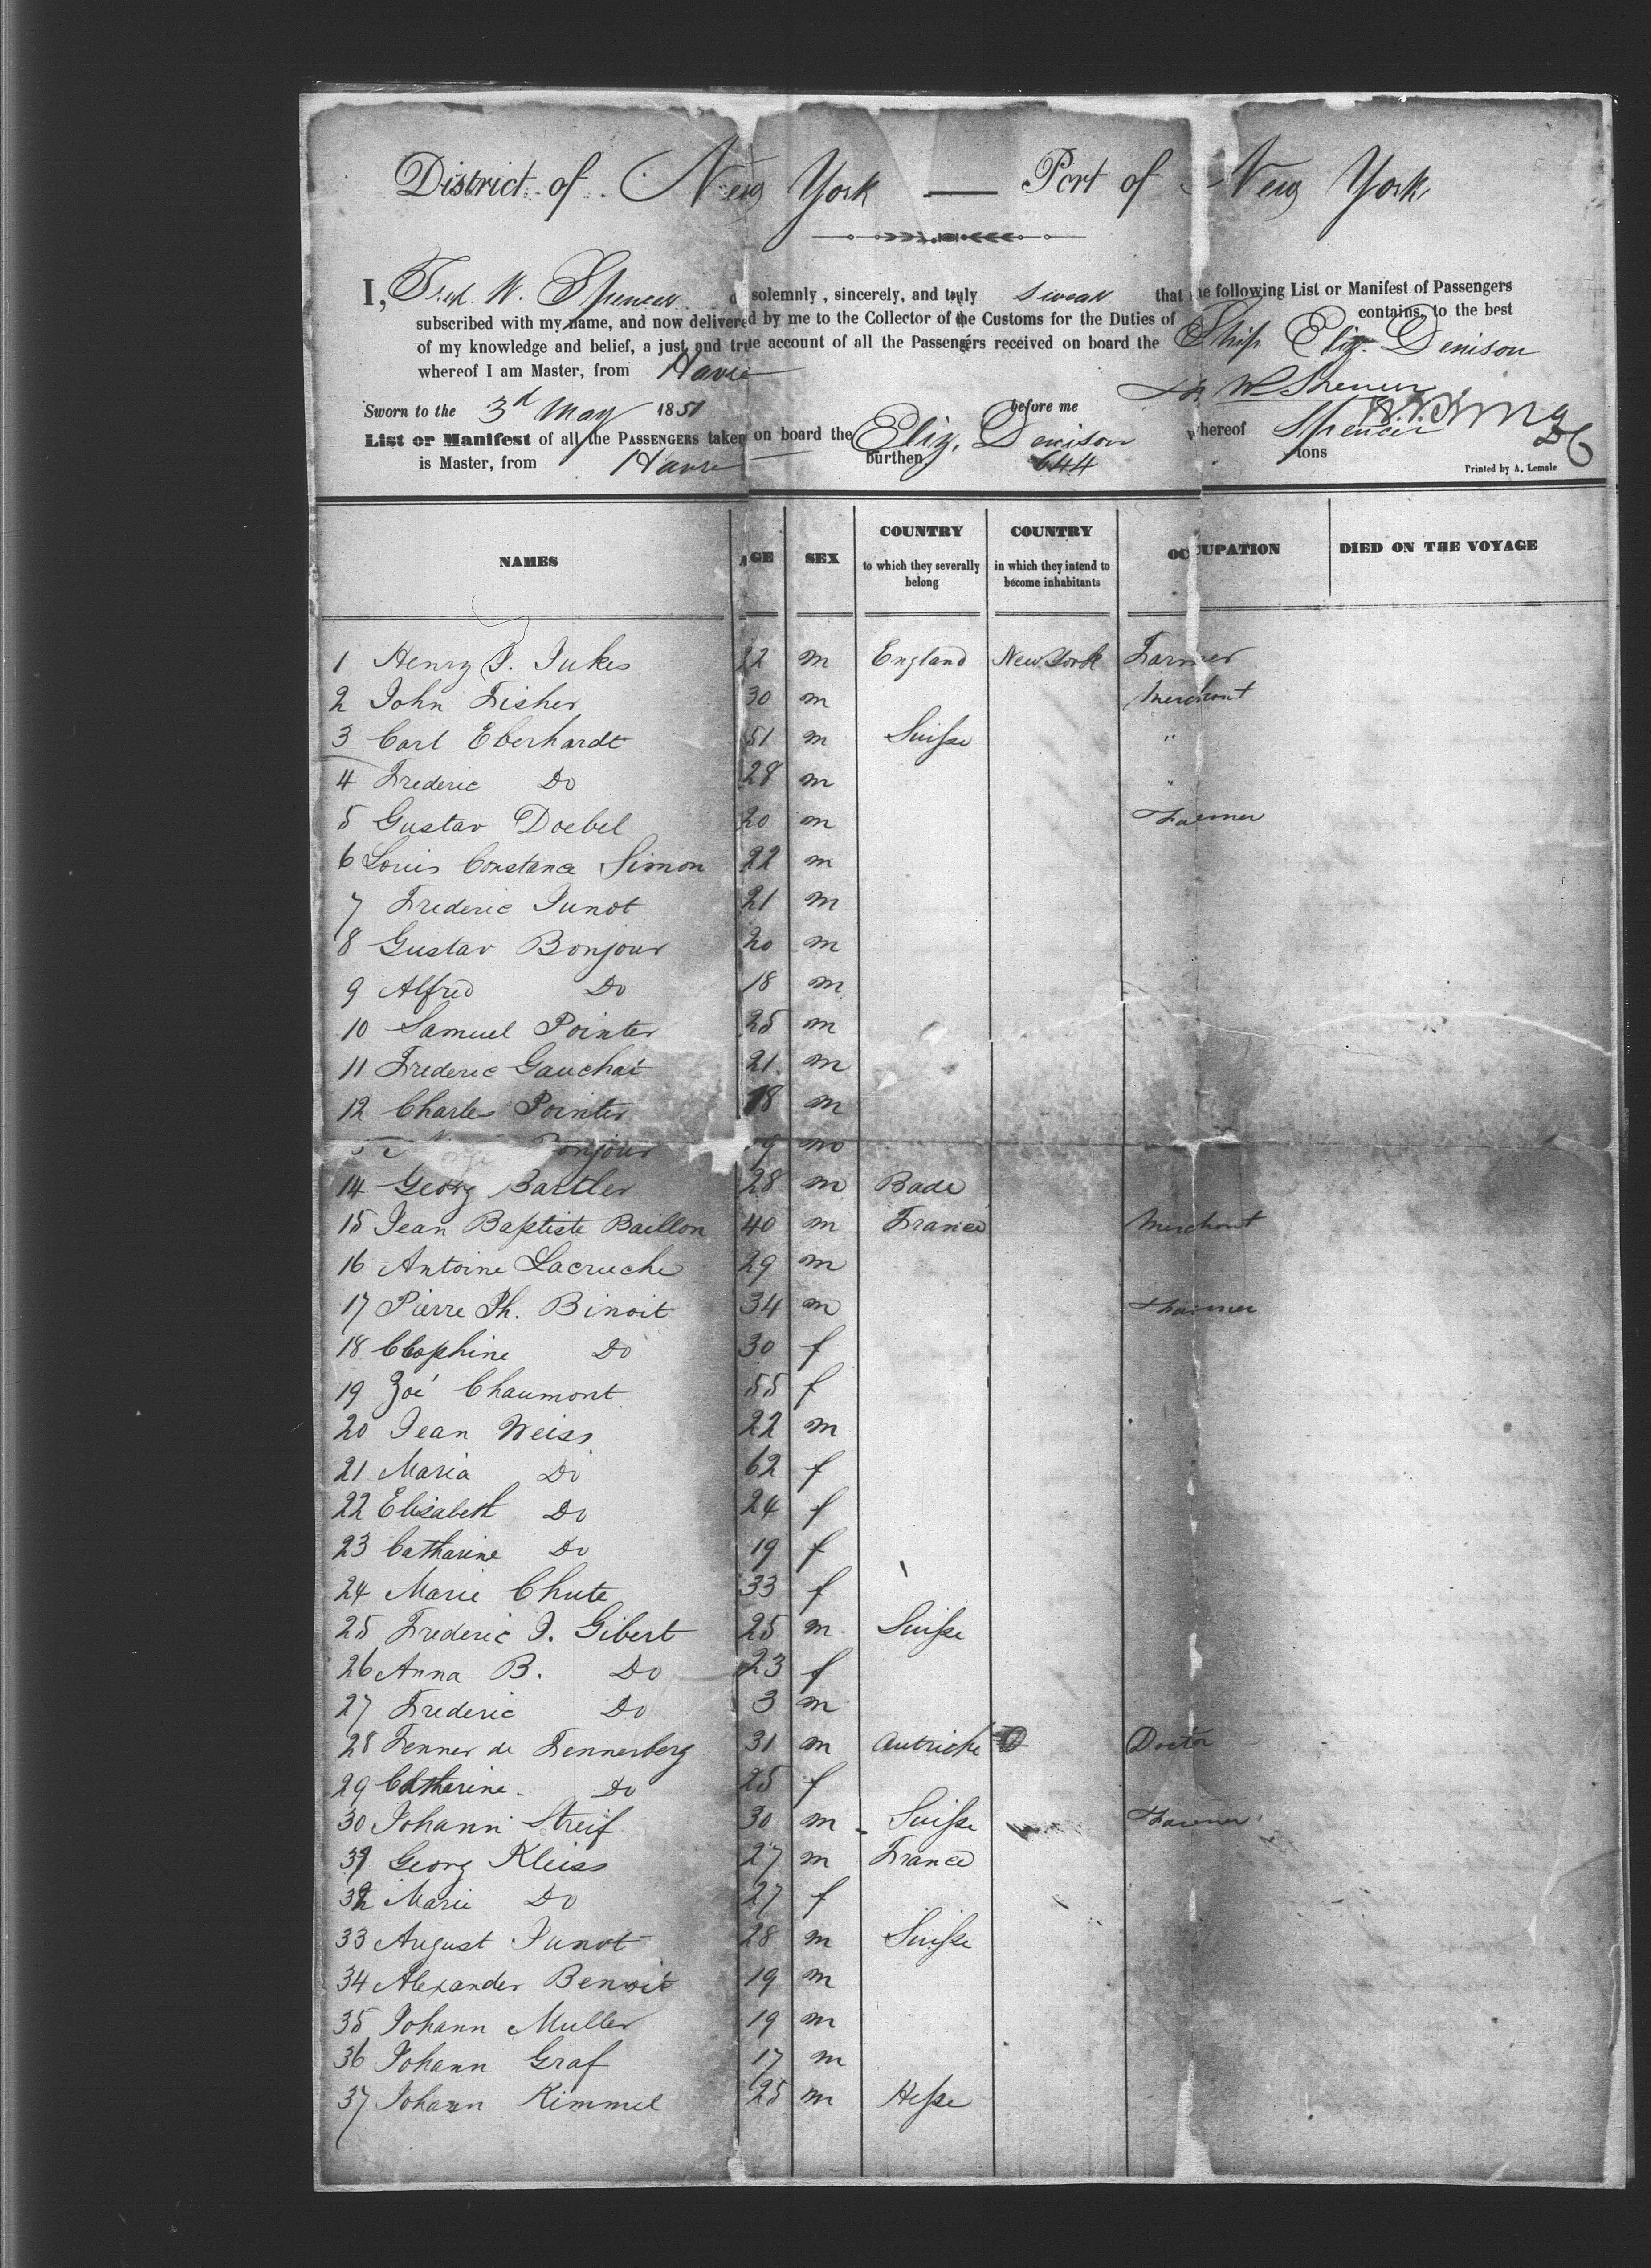 District of New York — Port of New York
I, Fred. W. Spencer do solemnly, sincerely, and truly swear that the following List or Manifest of Passengers
subscribed with my name, and now delivered by me to the Collector of the Customs for the Duties of contains, to the best
of my knowledge and belief, a just and true account of all the Passengers received on board the Ship Eliz. Denison
whereof I am Master, from Havre
W Spencer
Sworn to the 3d May 1851 before me
List or Manifest of all the PASSENGERS taken on board the Eliz. Denison whereof Spencer
is Master, from Havre burthen 644 tons
Printed by A. Lemale
NAMES AGE SEX COUNTRY to which they severally belong COUNTRY in which they intend to become inhabitants OCCUPATION DIED ON THE VOYAGE
1 Henry J. Jukes 22 m England New York Farmer
2 John Fisher 30 m Merchant
3 Carl Eberhardt 51 m Suisse "
4 Frederic Do 28 m "
5 Gustav Doebel 20 m Farmer
6 Louis Constance Simon 22 m
7 Frederic Junot 21 m
8 Gustav Bonjour 20 m
9 Alfred Do 18 m
10 Samuel Pointer 25 m
11 Frederic Gauchat 21 m
12 Charles Pointer 18 m
onjour 9 m
14 Georg Bartler 28 m Bade
15 Jean Baptiste Baillon 40 m France Merchant
16 Antoine Lacruche 29 m
17 Pierre Ph. Binoit 34 m Farmer
18 Cleophine Do 30 f
19 Zoé Chaumont 55 f
20 Jean Weiss 22 m
21 Maria Do 62 f
22 Elisabeth Do 24 f
23 Catharine Do 19 f
24 Marie Chute 33 f
25 Frederic J. Gibert 25 m Suisse
26 Anna B. Do 23 f
27 Frederic Do 3 m
28 Fenner de Fennerberg 31 m Autriche Doctor
29 Catharine Do 25 f
30 Johann Streif 30 m Suisse Farmer
31 Georg Kleiss 27 m France
32 Marie Do 27 f
33 August Junot 28 m Suisse
34 Alexander Benoit 19 m
35 Johann Muller 19 m
36 Johann Graf 17 m
37 Johann Kimmel 25 m Hesse